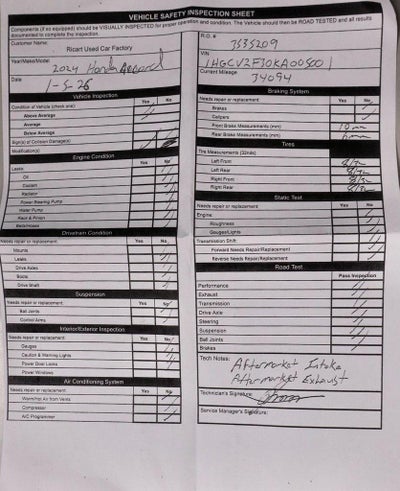 VEHICLE SAFETY INSPECTION SHEET
Components (if so equipped) should be VISUALLY INSPECTED for proper operation and condition. The Vehicle should then be ROAD TESTED and all results documented to complete the inspection.
Customer Name:
Ricart Used Car Factory
Year/Make/Model
2024 Honda Accord
Date
1-5-26
Vehicle Inspection
Condition of Vehicle (check one) Yes No
Above Average
Average
Below Average
Sign(s) of Collision Damage(s)
Modification(s)
Engine Condition
Leaks: Yes No
Oil
Coolant
Radiator
Power Steering Pump
Water Pump
Rear & Pinion
Belts/Hoses
Drivetrain Condition
Needs repair or replacement: Yes No
Mounts
Leaks
Drive Axles
Boots
Drive Shaft
Suspension
Needs repair or replacement: Yes No
Ball Joints
Control Arms
Interior/Exterior Inspection
Needs repair or replacement: Yes No
Gauges
Caution & Warning Lights
Power Door Locks
Power Windows
Air Conditioning System
Needs repair or replacement: Yes No
Warm/Hot Air from Vents
Compressor
A/C Programmer
R.O. #
3535209
VIN
1HGCV2F30KA005001
Current Mileage
34094
Braking System
Needs repair or replacement: Yes No
Brakes
Calipers
Front Brake Measurements (mm) 10mm
Rear Brake Measurements (mm) 6mm
Tires
Tire Measurements (32nds)
Left Front
Left Rear
Right Front
Right Rear
Static Test
Needs repair or replacement Yes No
Engine
Roughness
Gauges/Lights
Transmission Shift
Forward Needs Repair/Replacement
Reverse Needs Repair/Replacement
Road Test
Pass Inspection
Performance
Exhaust
Transmission
Drive Axle
Steering
Suspension
Ball Joints
Brakes
Tech Notes: Aftermarket Intake
Aftermarket Exhaust
Technician's Signature:
Service Manager's Signature: